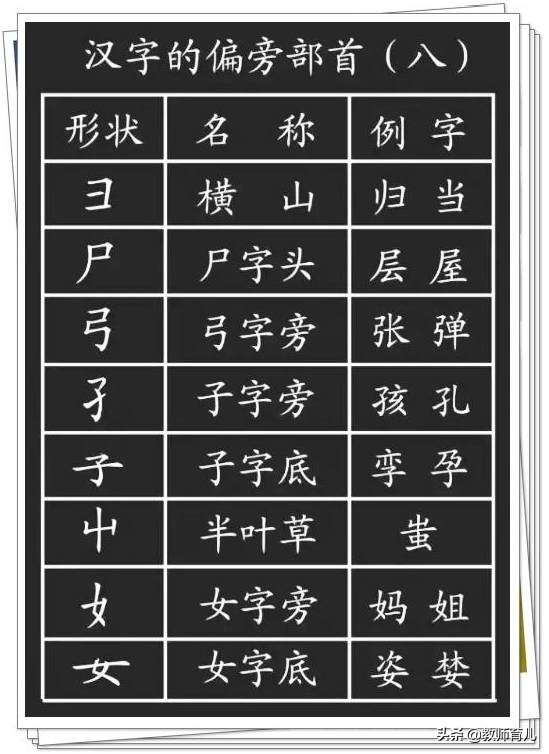 汉字的偏旁部首（八）
形状 名称 例字
彐 横山 归当
尸 尸字头 层屋
弓 弓字旁 张弹
孑 子字旁 孩孔
子 子字底 孪孕
屮 半叶草 蚩
女 女字旁 妈姐
女 女字底 姿婪
头条 @教师育儿